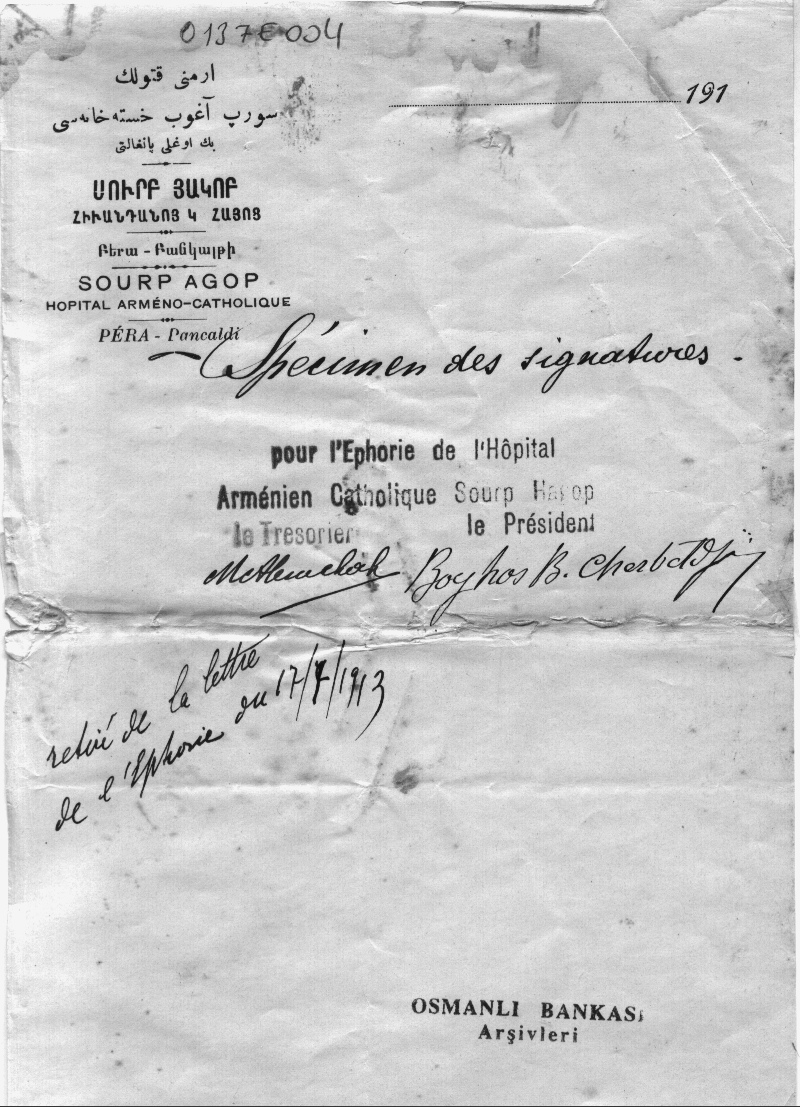 0137E004
ارمنی قتولك
سورپ آغوب خسته‌خانه‌سی
بك اوغلی پانغالتی
191
ՍՈՒՐԲ ՅԱԿՈԲ
ՀԻՒԱՆԴԱՆՈՑ Կ ՀԱՅՈՑ
Բերա - Բանկալթի
SOURP AGOP
HOPITAL ARMÉNO-CATHOLIQUE
PÉRA - Pancaldi
Spécimen des signatures.
pour l'Ephorie de l'Hôpital
Arménien Catholique Sourp Hagop
le Tresorier le Président
Boghos B. Cherbetdji
retiré de la lettre
de l'Ephorie du 17/7/1913
OSMANLI BANKASI
Arşivleri